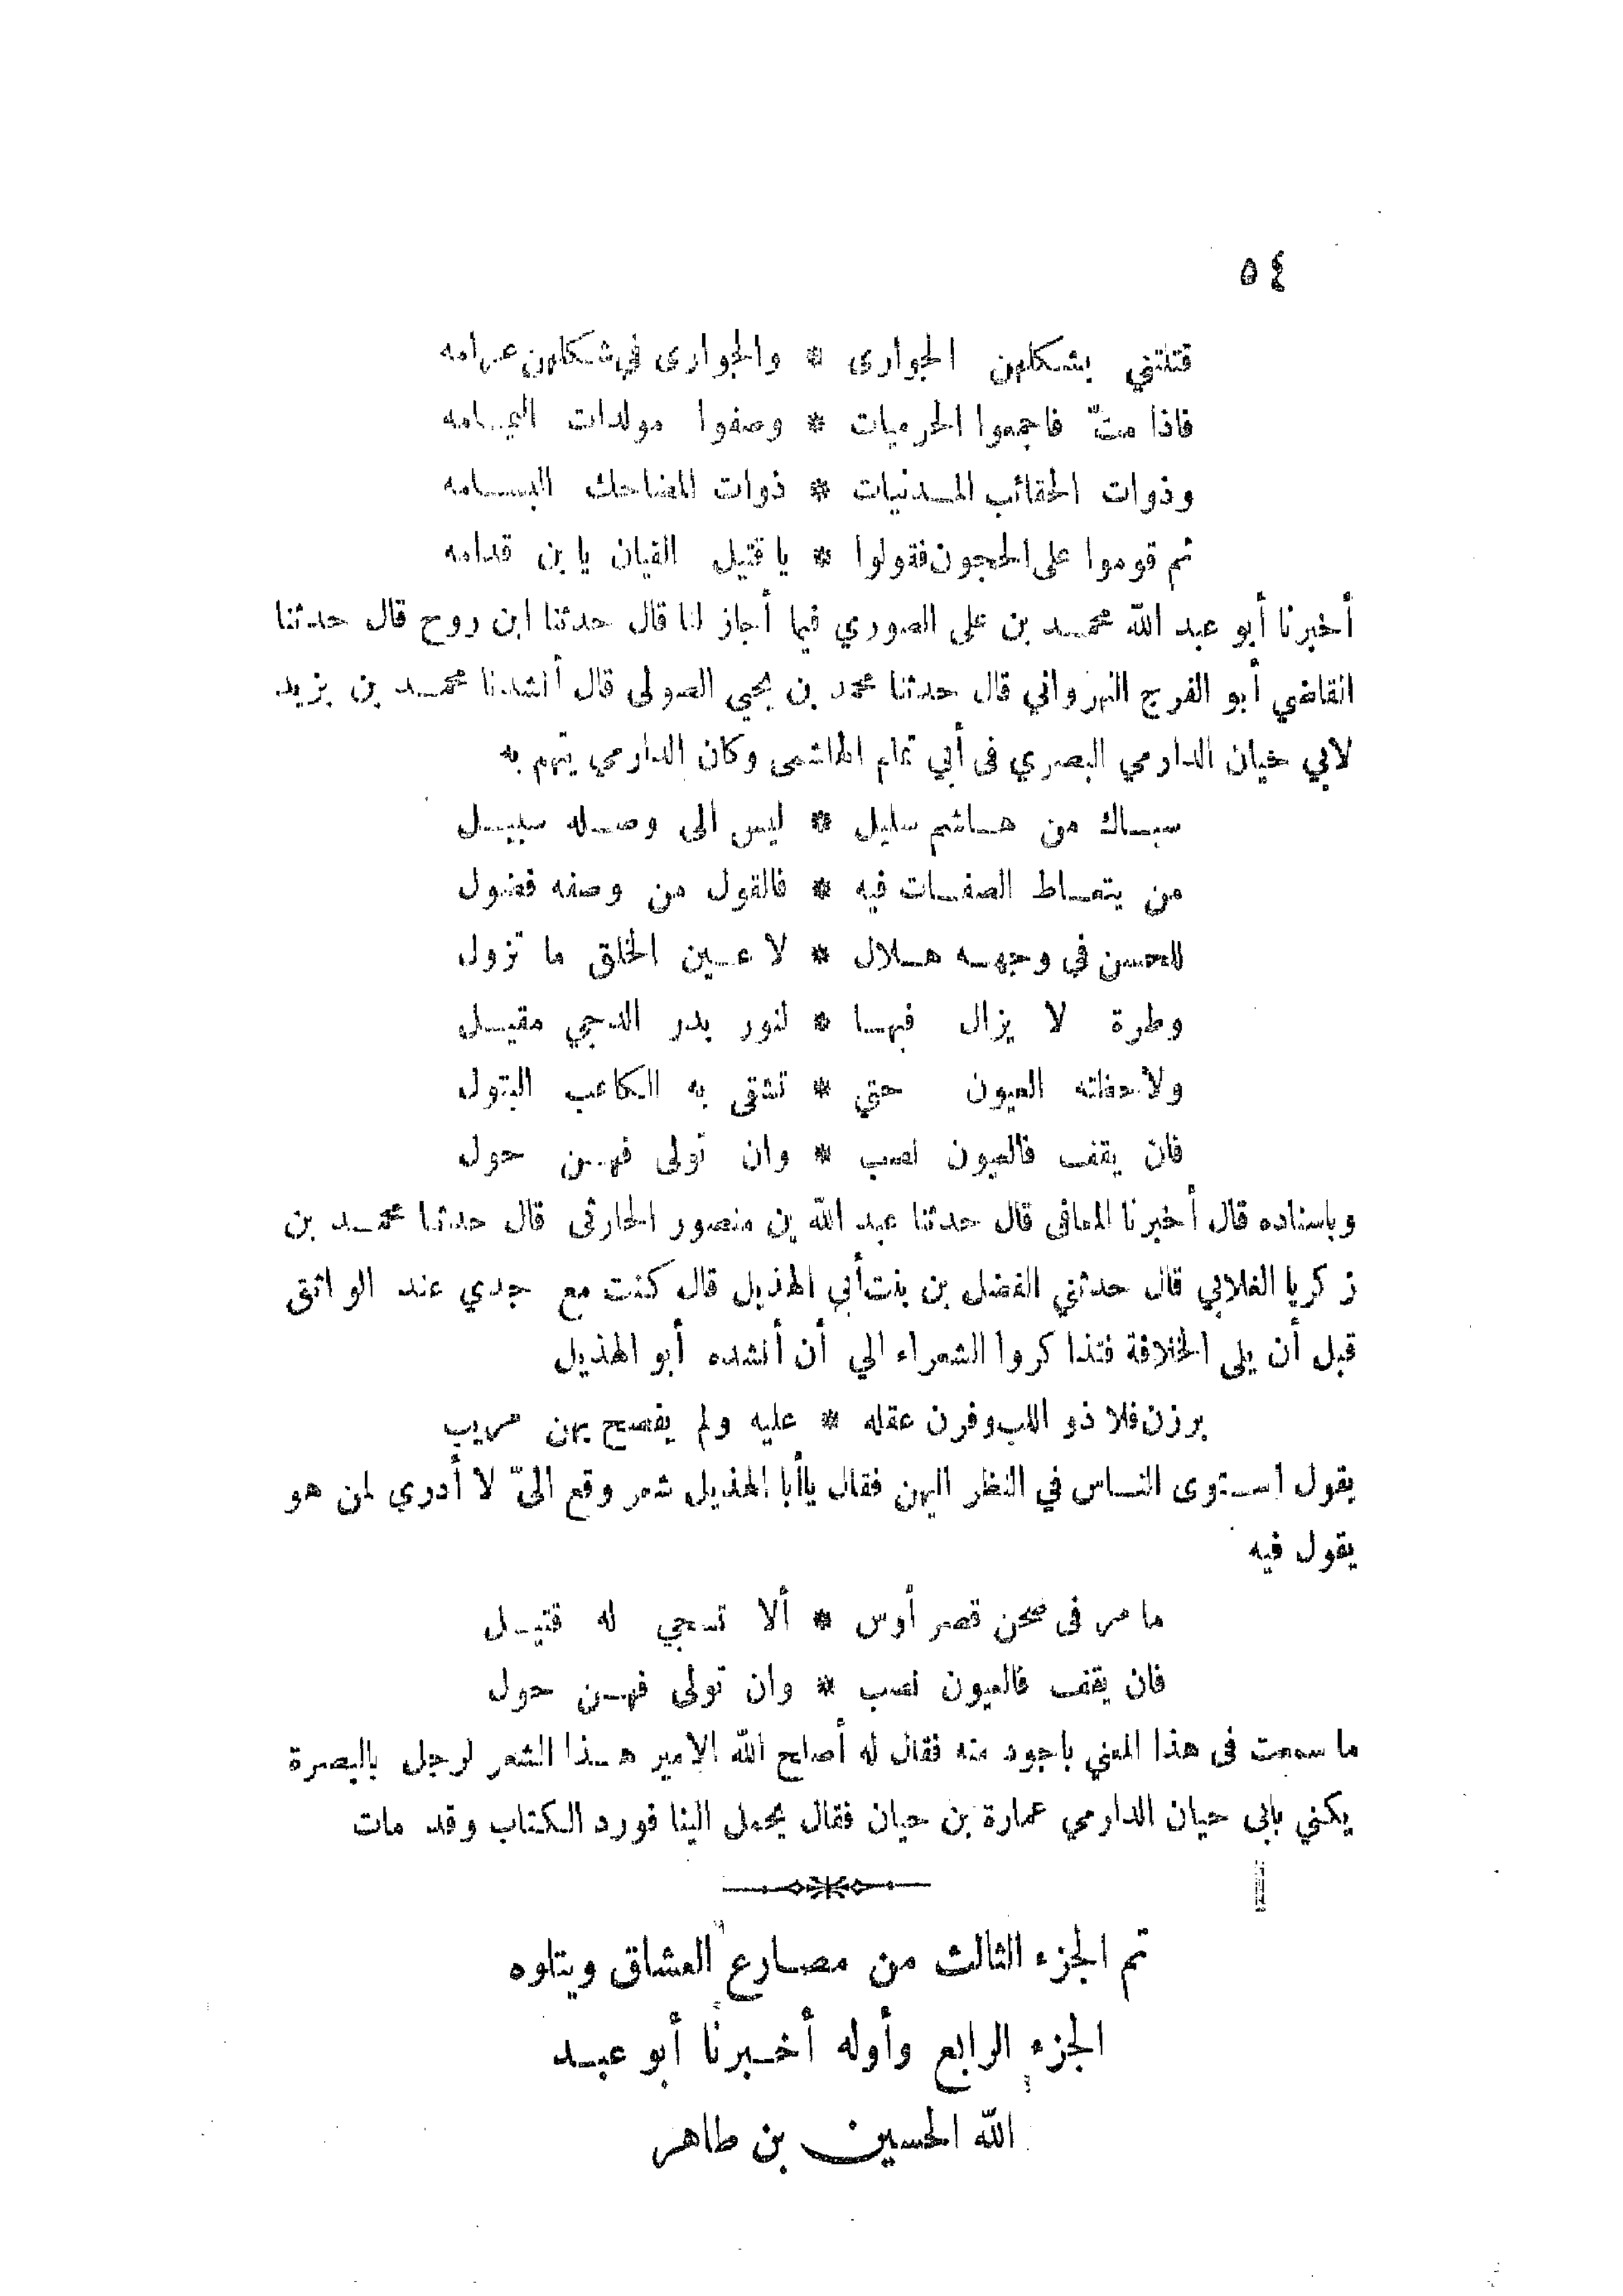 ٥٤
قتلتني بشكلهن الجوارى * والجوارى في شكلهن عرامه
فاذا متّ فاجمعوا الحرميات * وصفوا مولدات اليمامه
وذوات الحقائب المدنيات * ذوات المضاحك البسامه
ثم قوموا على الحجون فقولوا * يا قتيل القيان يا بن قدامه
أخبرنا أبو عبد الله محمد بن على الصوري فيما أجاز لنا قال حدثنا ابن روح قال حدثنا
القاضي أبو الفرج النهرواني قال حدثنا محمد بن يحيي الصولى قال أنشدنا محمد بن يزيد
لابي حيان الدارمي البصري فى أبي تمام الهاشمى وكان الدارمي يتهم به
سباك من هاشم سليل * ليس الى وصله سبيل
من يتعاط الصفات فيه * فالقول من وصفه فضول
للحسن في وجهه هلال * لا عين الخلق ما تزول
وطرة لا يزال فيها * لنور بدر الدجي مقيل
ولاحظته العيون حتي * تشقى به الكاعب البتول
فان يقف فالعيون نصب * وان تولى فهن حول
وباسناده قال أخبرنا المعافى قال حدثنا عبد الله بن منصور الحارثى قال حدثنا محمد بن
زكريا الغلابي قال حدثني الفضل بن بنت أبي الهذيل قال كنت مع جدي عند الواثق
قبل أن يلى الخلافة فتذاكروا الشعراء الي أن أنشده أبو الهذيل
برزن فلا ذو اللب وفرن عقله * عليه ولم يفصح بهن مريب
يقول استوى الناس في النظر اليهن فقال ياأبا الهذيل شعر وقع الىّ لا أدري لمن هو
يقول فيه
ما مر فى صحن قصر أوس * ألا تسجي له قتيل
فان يقف فالعيون نصب * وان تولى فهن حول
ما سمعت فى هذا المعني باجود منه فقال له أصلح الله الامير هذا الشعر لرجل بالبصرة
يكني بابى حيان الدارمي عمارة بن حيان فقال يحمل الينا فورد الكتاب وقد مات
تم الجزء الثالث من مصارع العشاق ويتلوه
الجزء الرابع وأوله أخبرنا أبو عبد
الله الحسين بن طاهر